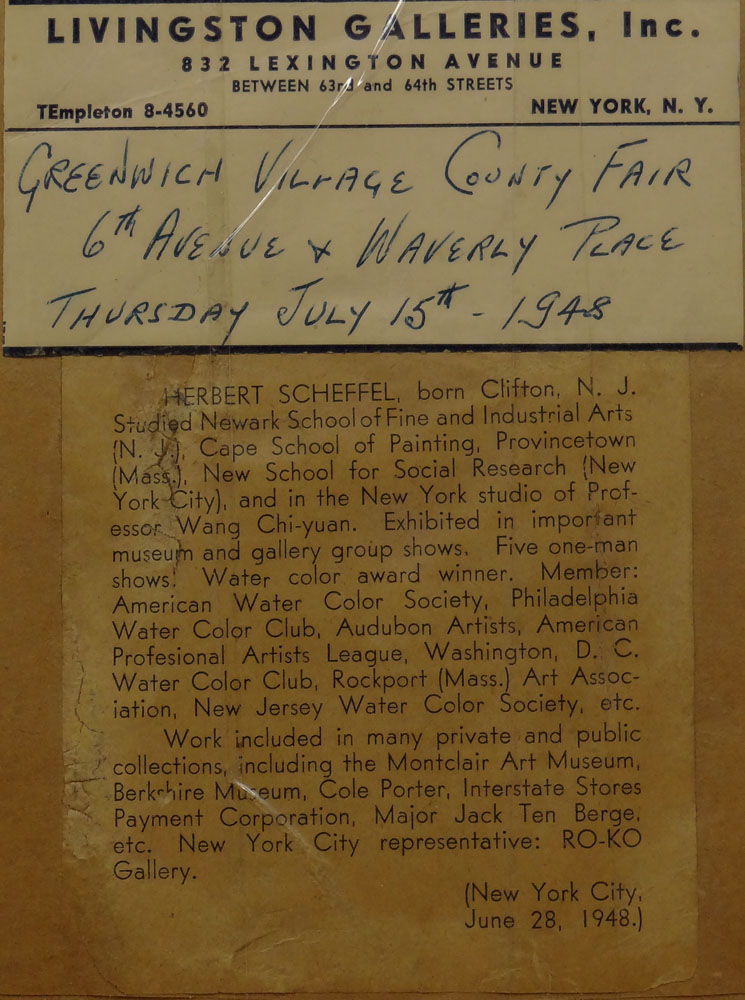 LIVINGSTON GALLERIES, Inc.
832 LEXINGTON AVENUE
BETWEEN 63rd and 64th STREETS
TEmpleton 8-4560 NEW YORK, N. Y.
GREENWICH VILLAGE COUNTY FAIR
6th AVENUE & WAVERLY PLACE
THURSDAY JULY 15th - 1948
HERBERT SCHEFFEL, born Clifton, N. J.
Studied Newark School of Fine and Industrial Arts
(N. J.), Cape School of Painting, Provincetown
(Mass.), New School for Social Research (New
York City), and in the New York studio of Prof-
essor Wang Chi-yuan. Exhibited in important
museum and gallery group shows. Five one-man
shows. Water color award winner. Member:
American Water Color Society, Philadelphia
Water Color Club, Audubon Artists, American
Profesional Artists League, Washington, D. C.
Water Color Club, Rockport (Mass.) Art Assoc-
iation, New Jersey Water Color Society, etc.
Work included in many private and public
collections, including the Montclair Art Museum,
Berkshire Museum, Cole Porter, Interstate Stores
Payment Corporation, Major Jack Ten Berge,
etc. New York City representative: RO-KO
Gallery.
(New York City,
June 28, 1948.)